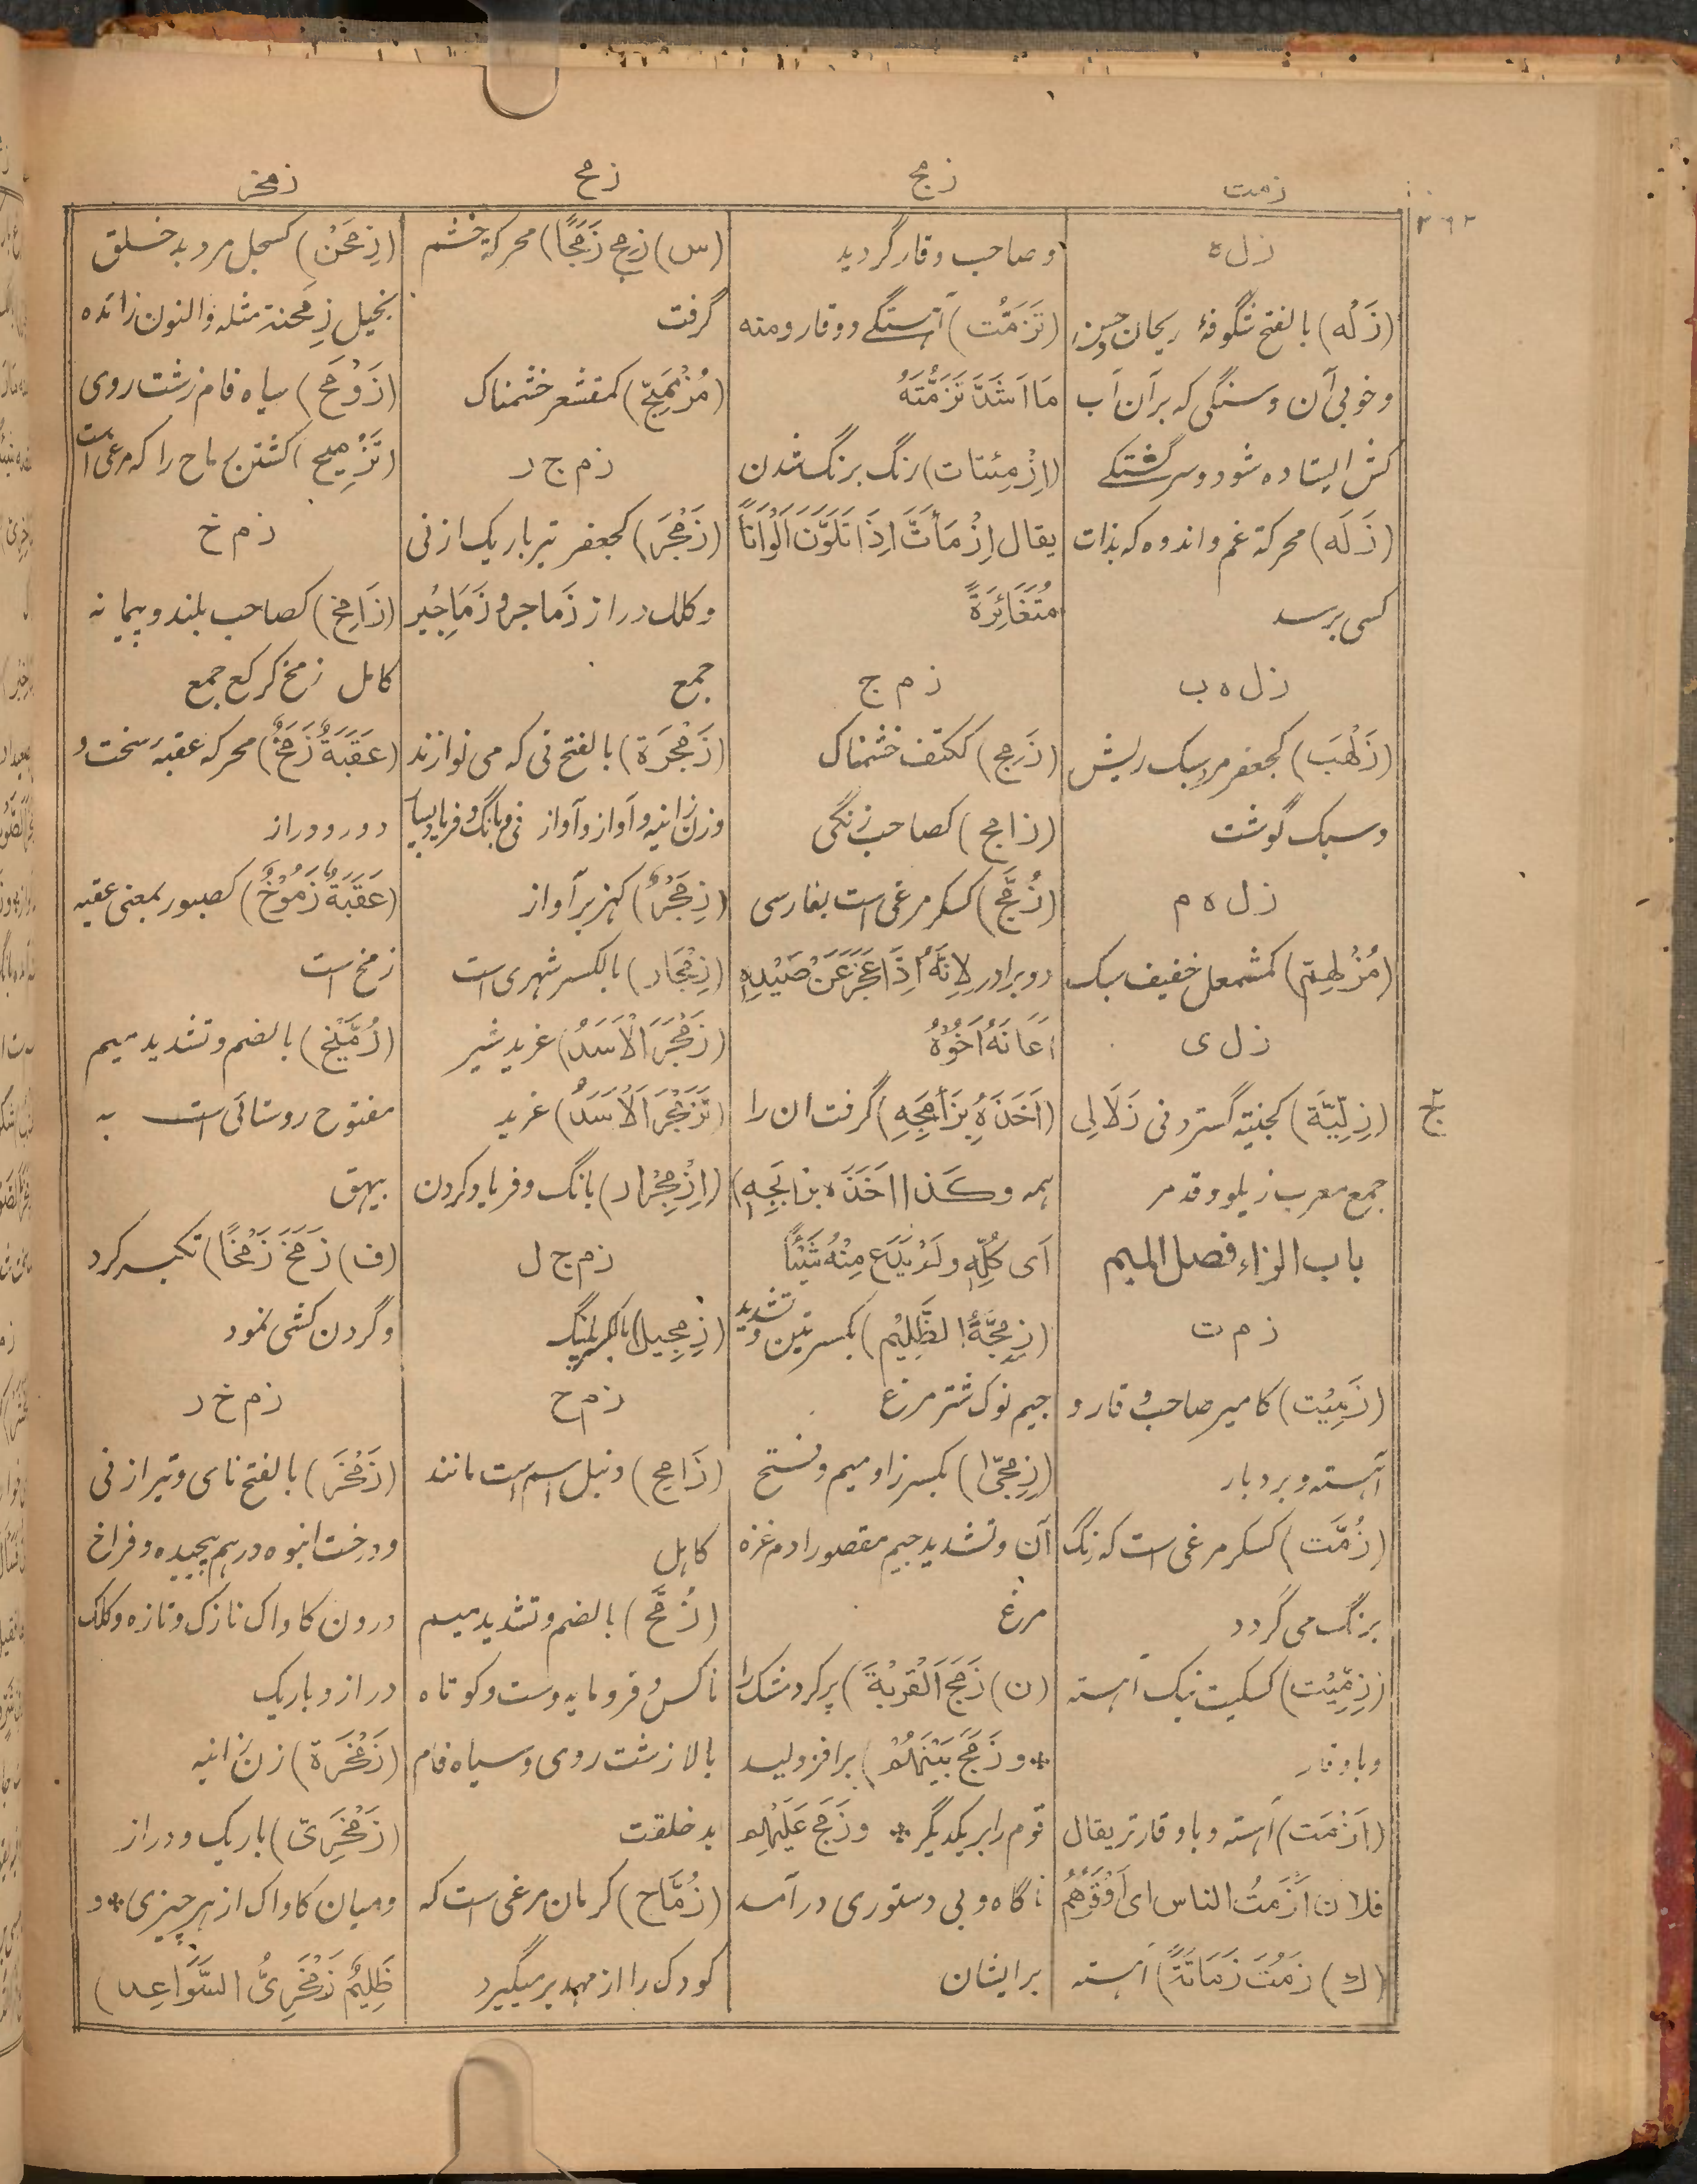 زمت
زمج
زمح
زمخر
ز ل ه
(زَلْه) بالفتح شگوفهٔ ریحان
وخوبی آن وسنگی که بر آن آب
کش ایستاده شود وسرگشتگی
(زَلَه) محرکة غم واندوه که بذات
کسی برسد
ز ل ه ب
(زَلْهَب) کجعفر مرد سبک ریش
وسبک گوشت
ز ل ه م
(مُزْلَهِمّ) کمشمعل خفیف سبک
ز ل ی
(زِلِّیَّة) کجنیّه گستردنی زَلَالِی
جمع معرب زیلو وقد مر
باب الزاء فصل المیم
ز م ت
(زَمِیْت) کامیر صاحب وقار و
آهسته وبردبار
(زُمَّت) کسکر مرغی است که رنگ
برنگ می گردد
(زِمِّیْت) کسکیت نیک آهسته
وباوقار
(اَزْمَت) آهسته وباوقارتر یقال
فلان اَزْمَتُ الناس ای اَوْقَرُهُمْ
(ك) زَمُتَ زَمَاتَةً) آهسته
وصاحب وقار گردید
(تَزَمُّت) آهستگی ووقار ومنه
مَا اَشَدَّ تَزَمُّتَهُ
(اِزْمِئتات) رنگ برنگ شدن
یقال اِزْمَأَتَّ اِذَا تَلَوَّنَ اَلْوَاناً
مُتَغَائِرَةً
ز م ج
(زَمِج) ککتف خشمناک
(زامج) کصاحب زنگی
(زُمَّج) کسکر مرغی است بفارسی
دوبرادر لِاَنَّهُ اِذَا عَجَزَ عَنْ صَیْدِهِ
اَعَانَهُ اَخُوْهُ
(اَخَذَهُ بِزَأمَجِهِ) گرفت آن را
همه وکَذا اَخَذَه بزابَجِهِ)
اَی کُلِّهِ ولَمْ یَدَع مِنْهُ شَیْئاً
(زِمِجَّةُ الظَّلِیْم) بکسرتین وتشدید
جیم نوک شترمرغ
(زِمِجّیٰ) بکسر زا ومیم وفتح
آن وتشدید جیم مقصورا دم غزه
مرغ
(ن) زَمَجَ الْقِرْبَةَ) پر کرد مشک را
* و زَمَجَ بَیْنَهُمْ) برافزولید
قوم را بر یکدیگر * وزَمَجَ عَلَیْهِم
ناگاه وبی دستوری درآمد
برایشان
(س) زمج زَمَجًا) محرکة خشم
گرفت
(مُزْمَئِجّ) کمقشعر خشمناک
ز م ج ر
(زَمْجَر) کجعفر تیر باریک از نی
وکلک دراز زَماجر وزَمَاجِیر
جمع
(زَمْجَرَة) بالفتح نی که می نوازند
وزن زانیه وآواز وآواز نی وبانگ وفریاد
(زِمَجْرٌ) کهزبر آواز
(زِمْجَار) بالکسر شهری است
(زَمْجَرَ الْاَسَدُ) غرید شیر
(تَزَمْجَرَ الْاَسَدُ) غرید
(اِزْمِجْرار) بانگ وفریاد کردن
ز م ج ل
(زِمْجِیل) بالکسر پلنگ
ز م ح
(زَامِح) دنبل اسم است مانند
کاهل
(زُمَّح) بالضم وتشدید میم
ناکس وفرومایه وست وکوتاه
بالا زشت روی وسیاه فام
بد خلقت
(زُمَّاح) کرمان مرغی است که
کودک را از مهد بر میگیرد
(زِمَحْنٌ) کسجل مرد بد خلق
بخیل زِمَحنة مثله والنون زائده
(زَوْمَح) سیاه فام زشت روی
(تَزْمِیح) کشتن زماح را که مرغی است
ز م خ
(زَامِخ) کصاحب بلند وپیمانه
کامل زمخ کرکع جمع
(عَقَبَةٌ زَمَخَةٌ) محرکه عقبهٔ سخت و
دور ودراز
(عَقَبَةٌ زَمُوْخٌ) کصبور بمعنی عقبه
زمخ است
(زُمَّیْخ) بالضم وتشدید میم
مفتوح روستائی است به
بیهق
(ف) زَمَخَ زَمْخًا) تکبر کرد
وگردن کشی نمود
ز م خ ر
(زَمْخَر) بالفتح نای وتیر از نی
ودرخت انبوه درهم پیچیده وفراخ
درون کاواک نازک وتازه وکلک
دراز وباریک
(زَمْخَرَة) زن زانیه
(زَمْخَرِیّ) باریک ودراز
ومیان کاواک از هر چیزی * و
ظَلِیْمٌ زَمْخَرِیُّ السَّوَاعِد)